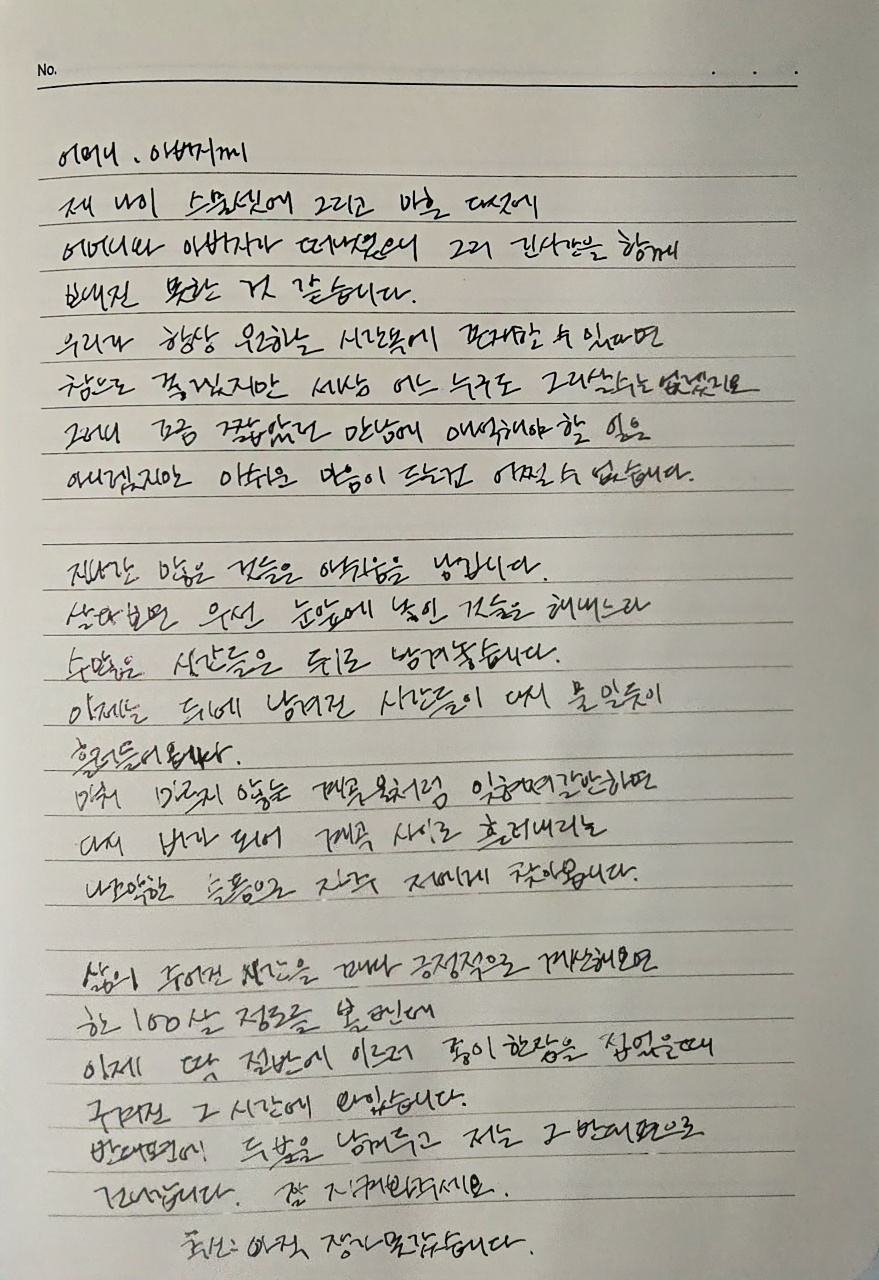 No.
어머니. 아버지께
제 나이 스물셋에 그리고 마흔 다섯에
어머니와 아버지가 떠나셨으니 그리 긴시간을 함께
보내진 못한 것 같습니다.
우리가 항상 원하는 시간속에 존재할 수 있다면
참으로 좋겠지만 세상 어느 누구도 그리살수는 없겠지요
그러니 조금 짧았던 만남에 애석해야 할 일은
아니겠지만 아쉬운 마음이 드는건 어쩔 수 없습니다.
지나간 많은 것들은 아쉬움을 남깁니다.
살다보면 우선 눈앞에 놓인 것들을 해내느라
수많은 시간들은 뒤로 남겨놓습니다.
이제는 뒤에 남겨진 시간들이 다시 물밀듯이
흘러들어옵니다.
미처 마르지 않는 계곡물처럼 잊혀져갈만하면
다시 비가 되어 계곡 사이로 흘러내리는
나즈막한 슬픔으로 자주 저에게 찾아옵니다.
삶의 주어진 시간을 꽤나 긍정적으로 계산해보면
한 100살 정도를 볼 텐데
이제 딱 절반에 이르러 종이 한장을 접었을때
구겨진 그 시간에 와있습니다.
반대편에 두 분을 남겨두고 저는 그 반대편으로
건너갑니다. 잘 지켜봐주세요.
추신: 아직, 장가 못갔습니다.